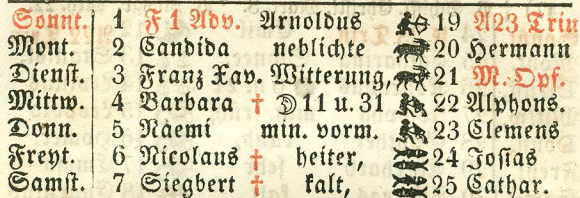 Sonnt. 1 F 1 Adv. Arnoldus 19 A23 Trin
Mont. 2 Candida neblichte 20 Hermann
Dienst. 3 Franz Xav. Witterung, 21 M. Opf.
Mittw. 4 Barbara † ☽ 11 u. 31 22 Alphons.
Donn. 5 Naemi min. vorm. 23 Clemens
Freyt. 6 Nicolaus † heiter, 24 Josias
Samst. 7 Siegbert † kalt, 25 Cathar.